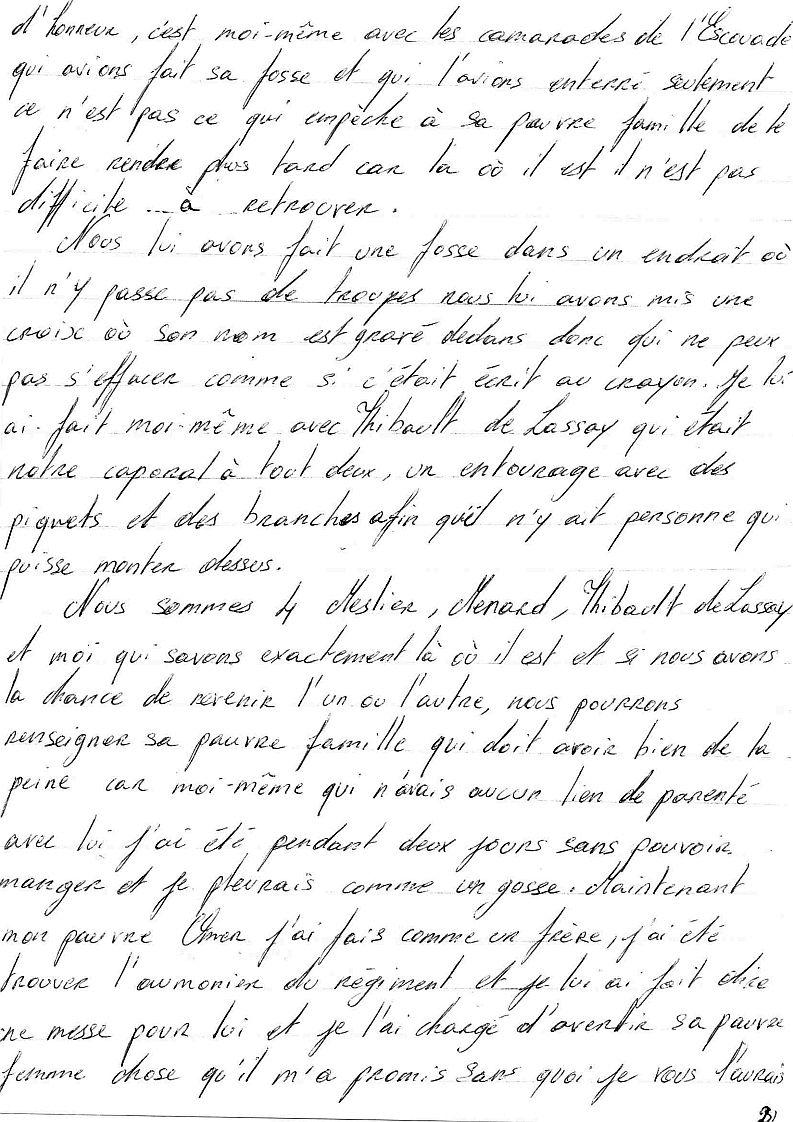 d'honneur, c'est moi-même avec les camarades de l'Escouade
qui avions fait sa fosse et qui l'avions enterré seulement
ce n'est pas ce qui empèche à sa pauvre famille de le
faire rendre plus tard car là où il est il n'est pas
difficile à retrouver.
Nous lui avons fait une fosse dans un endroit où
il n'y passe pas de troupes nous lui avons mis une
croix où son nom est gravé dedans donc qui ne peux
pas s'effacer comme si c'était écrit au crayon. Je lui
ai fait moi-même avec Thibault de Lassay qui était
notre caporal à tout deux, un entourage avec des
piquets et des branches afin qu'il n'y ait personne qui
puisse monter dessus.
Nous sommes 4 Meslier, Menard, Thibault de Lassay
et moi qui savons exactement là où il est et si nous avons
la chance de revenir l'un ou l'autre, nous pourrons
renseigner sa pauvre famille qui doit avoir bien de la
peine car moi-même qui n'avais aucun lien de parenté
avec lui j'ai été pendant deux jours sans pouvoir
manger et je pleurais comme un gosse. Maintenant
mon pauvre Omer j'ai fais comme un frère, j'ai été
trouver l'aumonier du régiment et je lui ai fait dire
ne messe pour lui et je l'ai chargé d'avertir sa pauvre
femme chose qu'il m'a promis sans quoi je vous l'aurais